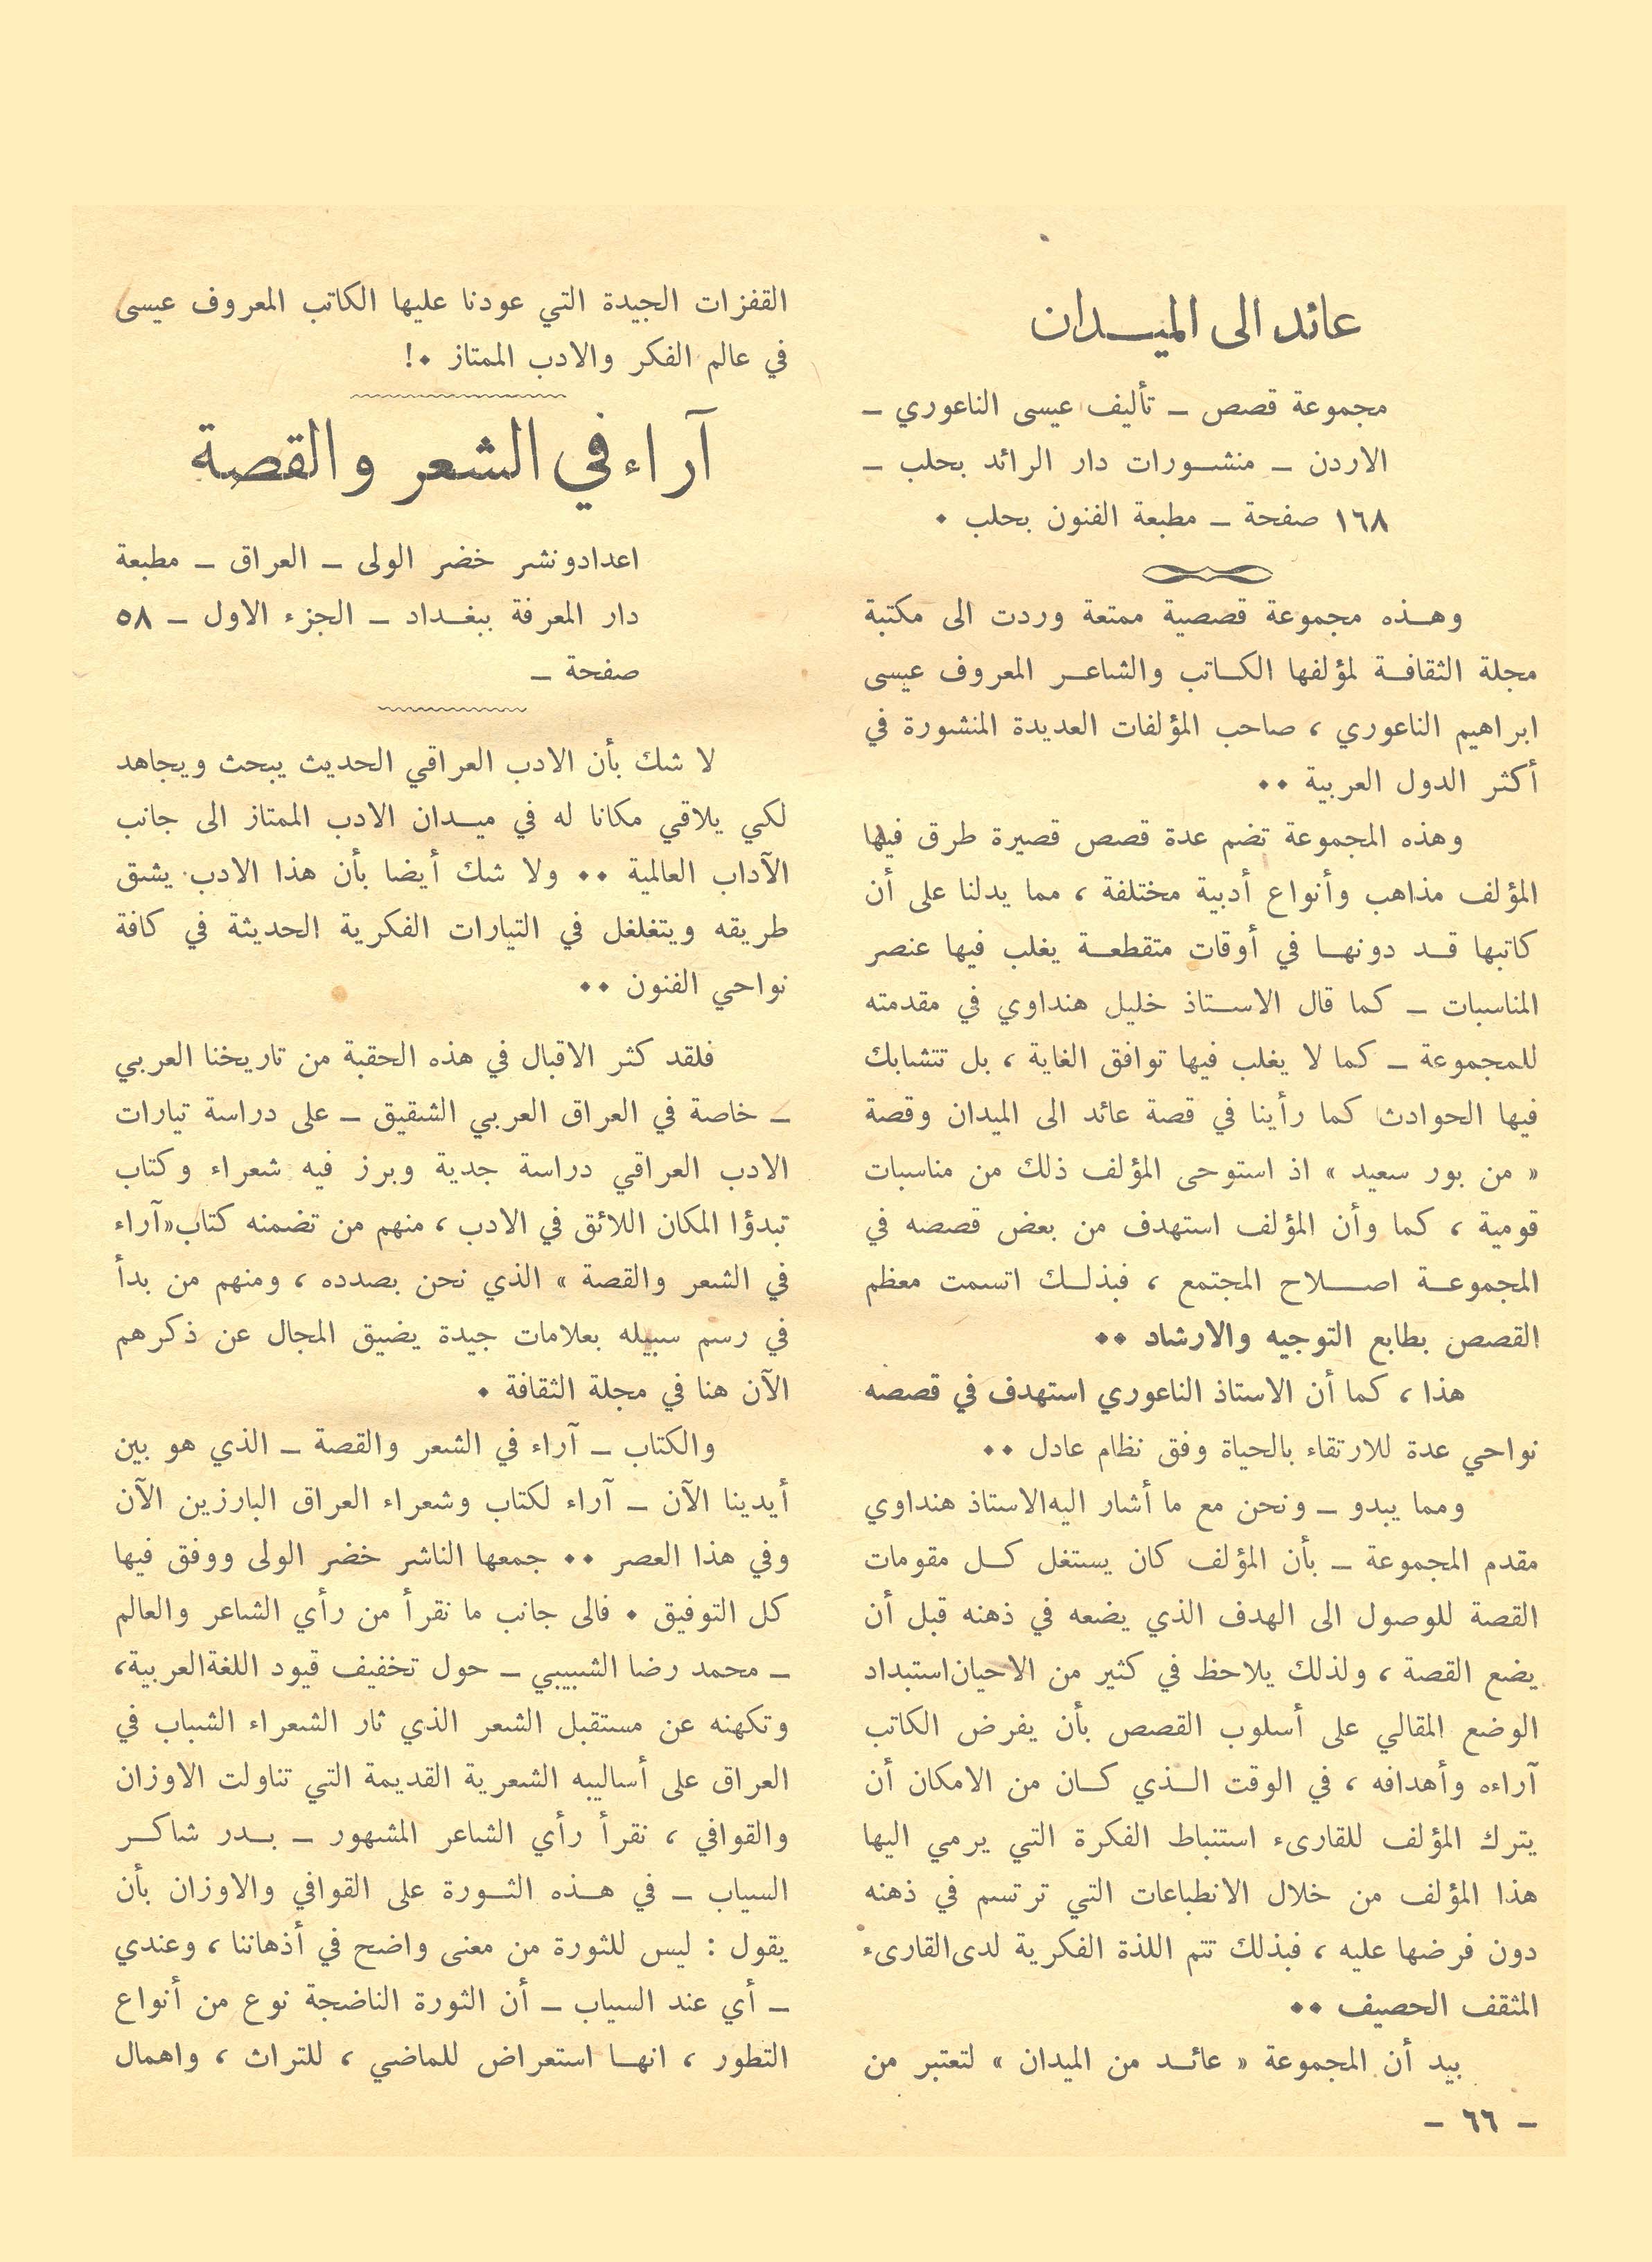 عائد الى الميـدان
مجموعة قصص ـ تأليف عيسى الناعوري ـ
الاردن ـ منشـورات دار الرائد بحلب ـ
١٦٨ صفحة ـ مطبعة الفنون بحلب ٠
وهـذه مجموعة قصصية ممتعة وردت الى مكتبة
مجلة الثقافـة لمؤلفها الكـاتب والشاعـر المعروف عيسى
ابراهيم الناعوري ، صاحب المؤلفات العديدة المنشورة في
أكثر الدول العربية ٠٠
وهذه المجموعة تضم عدة قصص قصيرة طرق فيها
المؤلف مذاهب وأنواع أدبية مختلفة ، مما يدلنا على أن
كاتبها قـد دونهـا في أوقات متقطعـة يغلب فيها عنصر
المناسبات ـ كما قال الاسـتاذ خليل هنداوي في مقدمته
للمجموعة ـ كما لا يغلب فيها توافق الغاية ، بل تتشابك
فيها الحوادث كما رأينا في قصة عائد الى الميدان وقصة
« من بور سعيد » اذ استوحى المؤلف ذلك من مناسبات
قومية ، كما وأن المؤلف استهدف من بعض قصصه في
المجموعـة اصـلاح المجتمع ، فبذلـك اتسمت معظم
القصص بطابع التوجيه والارشاد ٠٠
هذا ، كما أن الاستاذ الناعوري استهدف في قصصه
نواحي عدة للارتقاء بالحياة وفق نظام عادل ٠٠
ومما يبدو ـ ونحن مع ما أشار اليه الاستاذ هنداوي
مقدم المجموعة ـ بأن المؤلف كان يستغل كـل مقومات
القصة للوصول الى الهدف الذي يضعه في ذهنه قبل أن
يضع القصة ، ولذلك يلاحظ في كثير من الاحيان استبداد
الوضع المقالي على أسلوب القصص بأن يفرض الكاتب
آراءه وأهدافه ، في الوقت الـذي كـان من الامكان أن
يترك المؤلف للقارىء استنباط الفكرة التي يرمي اليها
هذا المؤلف من خلال الانطباعات التي ترتسم في ذهنه
دون فرضها عليه ، فبذلك تتم اللذة الفكرية لدى القارىء
المثقف الحصيف ٠٠
بيد أن المجموعة « عائـد من الميدان » لتعتبر من
ـ ٦٦ ـ
القفزات الجيدة التي عودنا عليها الكاتب المعروف عيسى
في عالم الفكر والادب الممتاز ٠!
آراء في الشعر والقصة
اعداد ونشر خضر الولى ـ العراق ـ مطبعة
دار المعرفة ببغـداد ـ الجزء الاول ـ ٥٨
صفحة ـ
لا شك بأن الادب العراقي الحديث يبحث ويجاهد
لكي يلاقي مكانا له في ميـدان الادب الممتاز الى جانب
الآداب العالمية ٠٠ ولا شك أيضا بأن هذا الادب يشق
طريقه ويتغلغل في التيارات الفكرية الحديثة في كافة
نواحي الفنون ٠٠
فلقد كثر الاقبال في هذه الحقبة من تاريخنا العربي
ـ خاصة في العراق العربي الشقيق ـ على دراسة تيارات
الادب العراقي دراسة جدية وبرز فيه شعراء وكتاب
تبدؤا المكان اللائق في الادب ، منهم من تضمنه كتاب «آراء
في الشعر والقصة » الذي نحن بصدده ، ومنهم من بدأ
في رسم سبيله بعلامات جيدة يضيق المجال عن ذكرهم
الآن هنا في مجلة الثقافة ٠
والكتاب ـ آراء في الشعر والقصة ـ الذي هو بين
أيدينا الآن ـ آراء لكتاب وشعراء العراق البارزين الآن
وفي هذا العصر ٠٠ جمعها الناشر خضر الولى ووفق فيها
كل التوفيق ٠ فالى جانب ما نقرأ من رأي الشاعر والعالم
ـ محمد رضا الشبيبي ـ حول تخفيف قيود اللغة العربية،
وتكهنه عن مستقبل الشعر الذي ثار الشعراء الشباب في
العراق على أساليبه الشعرية القديمة التي تناولت الاوزان
والقوافي ، نقرأ رأي الشاعر المشهور ـ بـدر شاكـر
السياب ـ في هـذه الثـورة على القوافي والاوزان بأن
يقول : ليس للثورة من معنى واضح في أذهاننا ، وعندي
ـ أي عند السياب ـ أن الثورة الناضجة نوع من أنواع
التطور ، انهـا استعراض للماضي ، للتراث ، واهمال